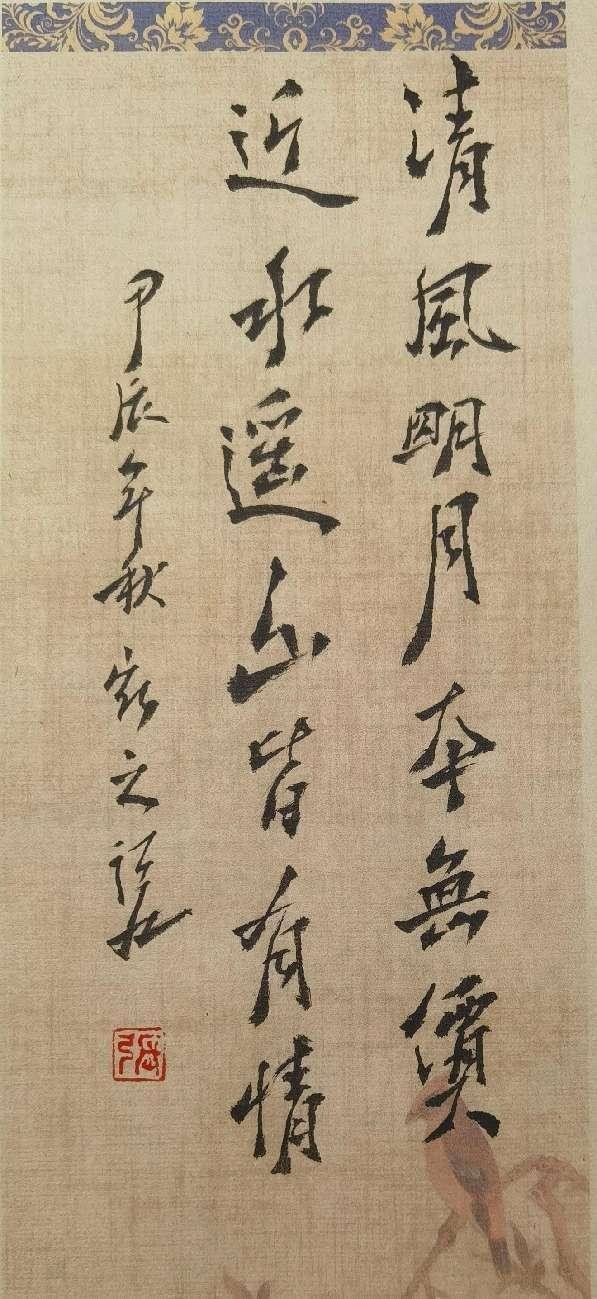 清風明月本無價
近水遥山皆有情
甲辰年秋
張